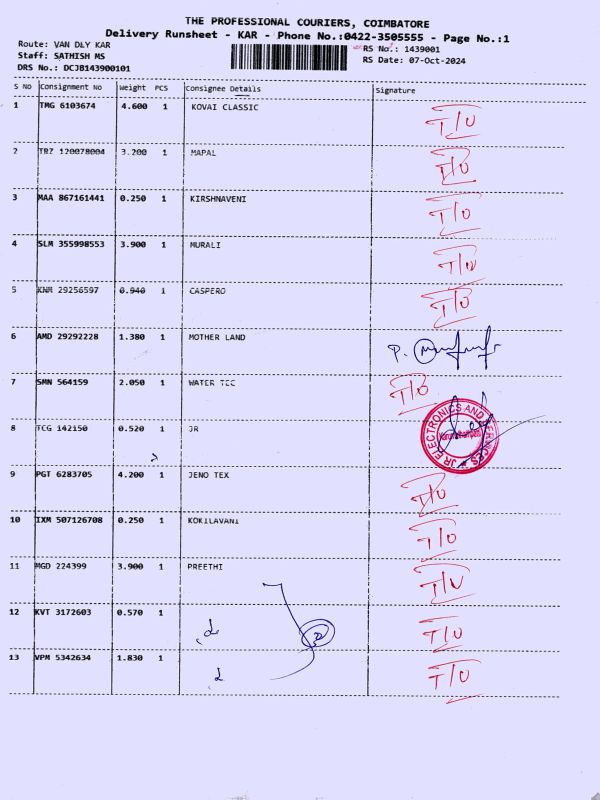 THE PROFESSIONAL COURIERS, COIMBATORE
Delivery Runsheet - KAR - Phone No.:0422-3505555 - Page No.:1
Route: VAN DLY KAR
Staff: SATHISH MS
DRS No.: DCJB143900101
RS No.: 1439001
RS Date: 07-Oct-2024
S No Consignment No Weight PCS Consignee Details Signature
1 TMG 6103674 4.600 1 KOVAI CLASSIC T/O
2 TRZ 120078004 3.200 1 MAPAL T/O
3 MAA 867161441 0.250 1 KIRSHNAVENI T/O
4 SLM 355998553 3.900 1 MURALI T/O
5 KNM 29256597 0.940 1 CASPERO T/O
6 AMD 29292228 1.380 1 MOTHER LAND P.
7 SMN 564159 2.050 1 WATER TEC T/O
8 TCG 142150 0.520 1 JR
JR ELECTRONICS AND SERVICES
9 PGT 6283705 4.200 1 JENO TEX T/O
10 IXM 507126708 0.250 1 KOKILAVANI T/O
11 MGD 224399 3.900 1 PREETHI T/O
12 KVT 3172603 0.570 1 T/O
13 VPM 5342634 1.830 1 T/O